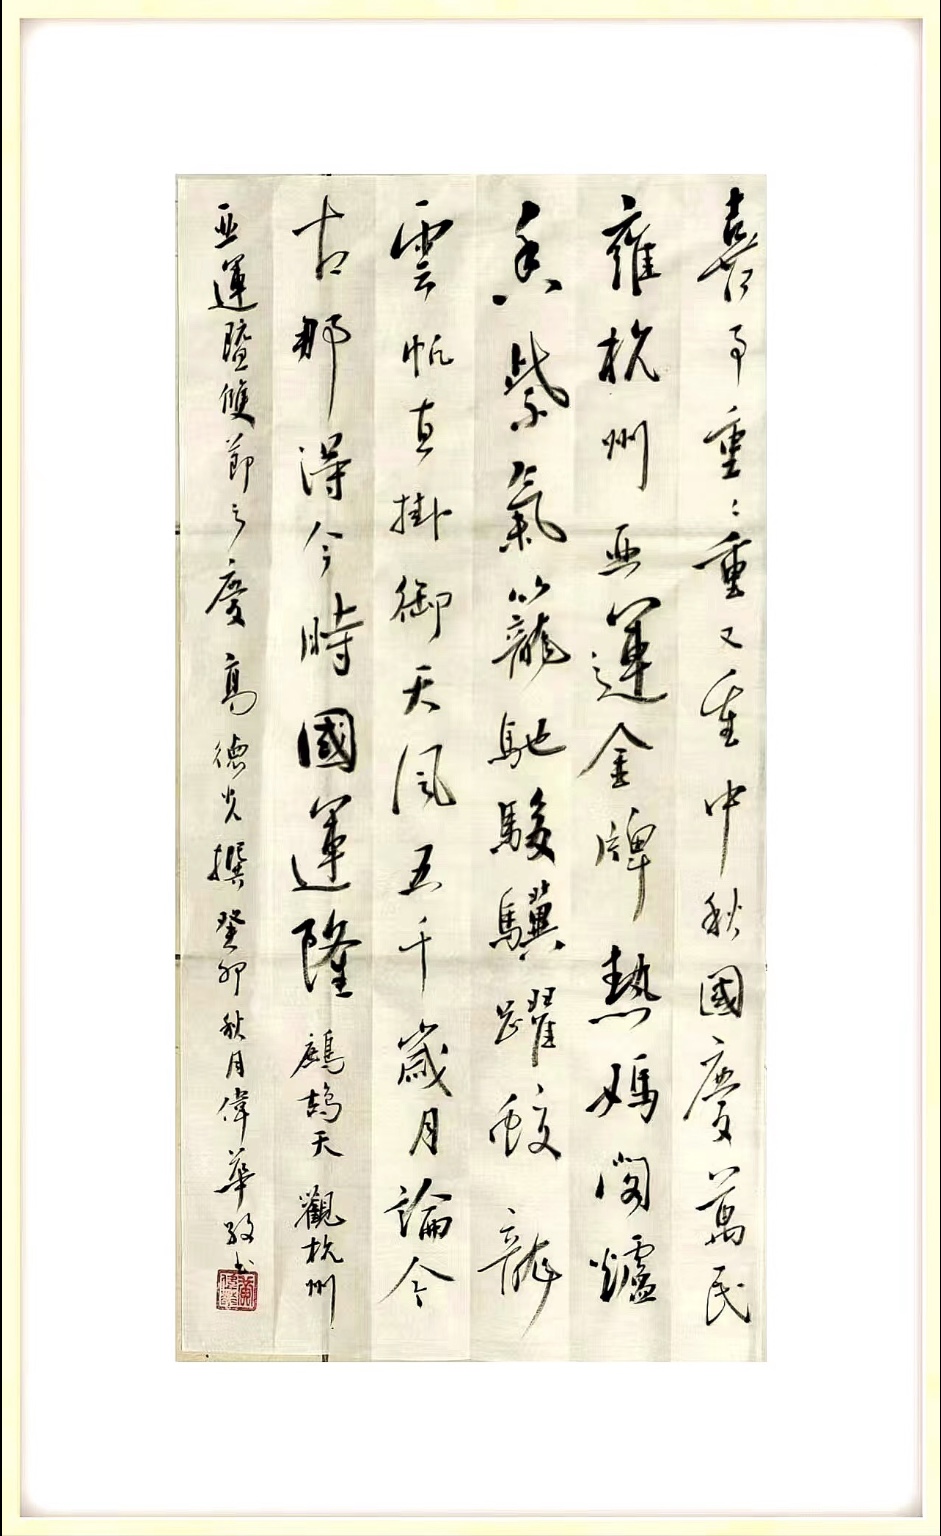 喜事重〻重又重中秋國慶萬民
雍杭州亞運金牌熱媽閣爐
香紫氣籠馳駿驥躍蛟龍
雲帆直掛御天風五千歲月論今
古那得今時國運隆 鷓鴣天 觀杭州
亞運暨雙節之慶 高德光撰 癸卯秋月偉華敬書